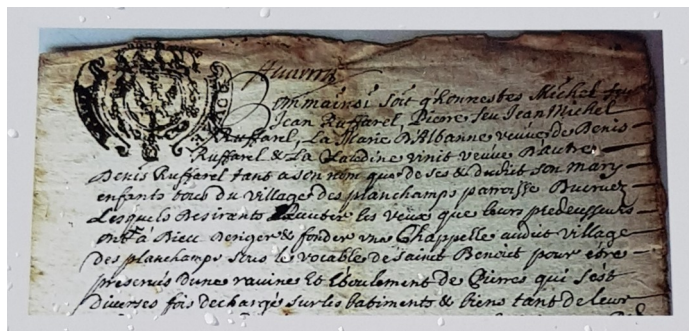 Comme ainsi soit q honnestes Michel feu
Jean Ruffarel, Pierre feu Jean Michel
Ruffarel, La Marie D'Albanne veuve de Denis
Ruffarel & La Claudine vinit veuve D'autre
Denis Ruffarel tant a son nom que de ses & dudit son mary
enfants tous du village des planchamps parroisse
Lesquels Desirants les veux que leurs predecesseurs
ont à Dieu D'eriger & fonder une Chappelle audit village
des planchamps sous le vocable de Sainct Benoit pour être
preservés D'une ravines Et Eboulement de Pierres qui s'est
diverses fois dechargé sur les batiments & biens tant de leur